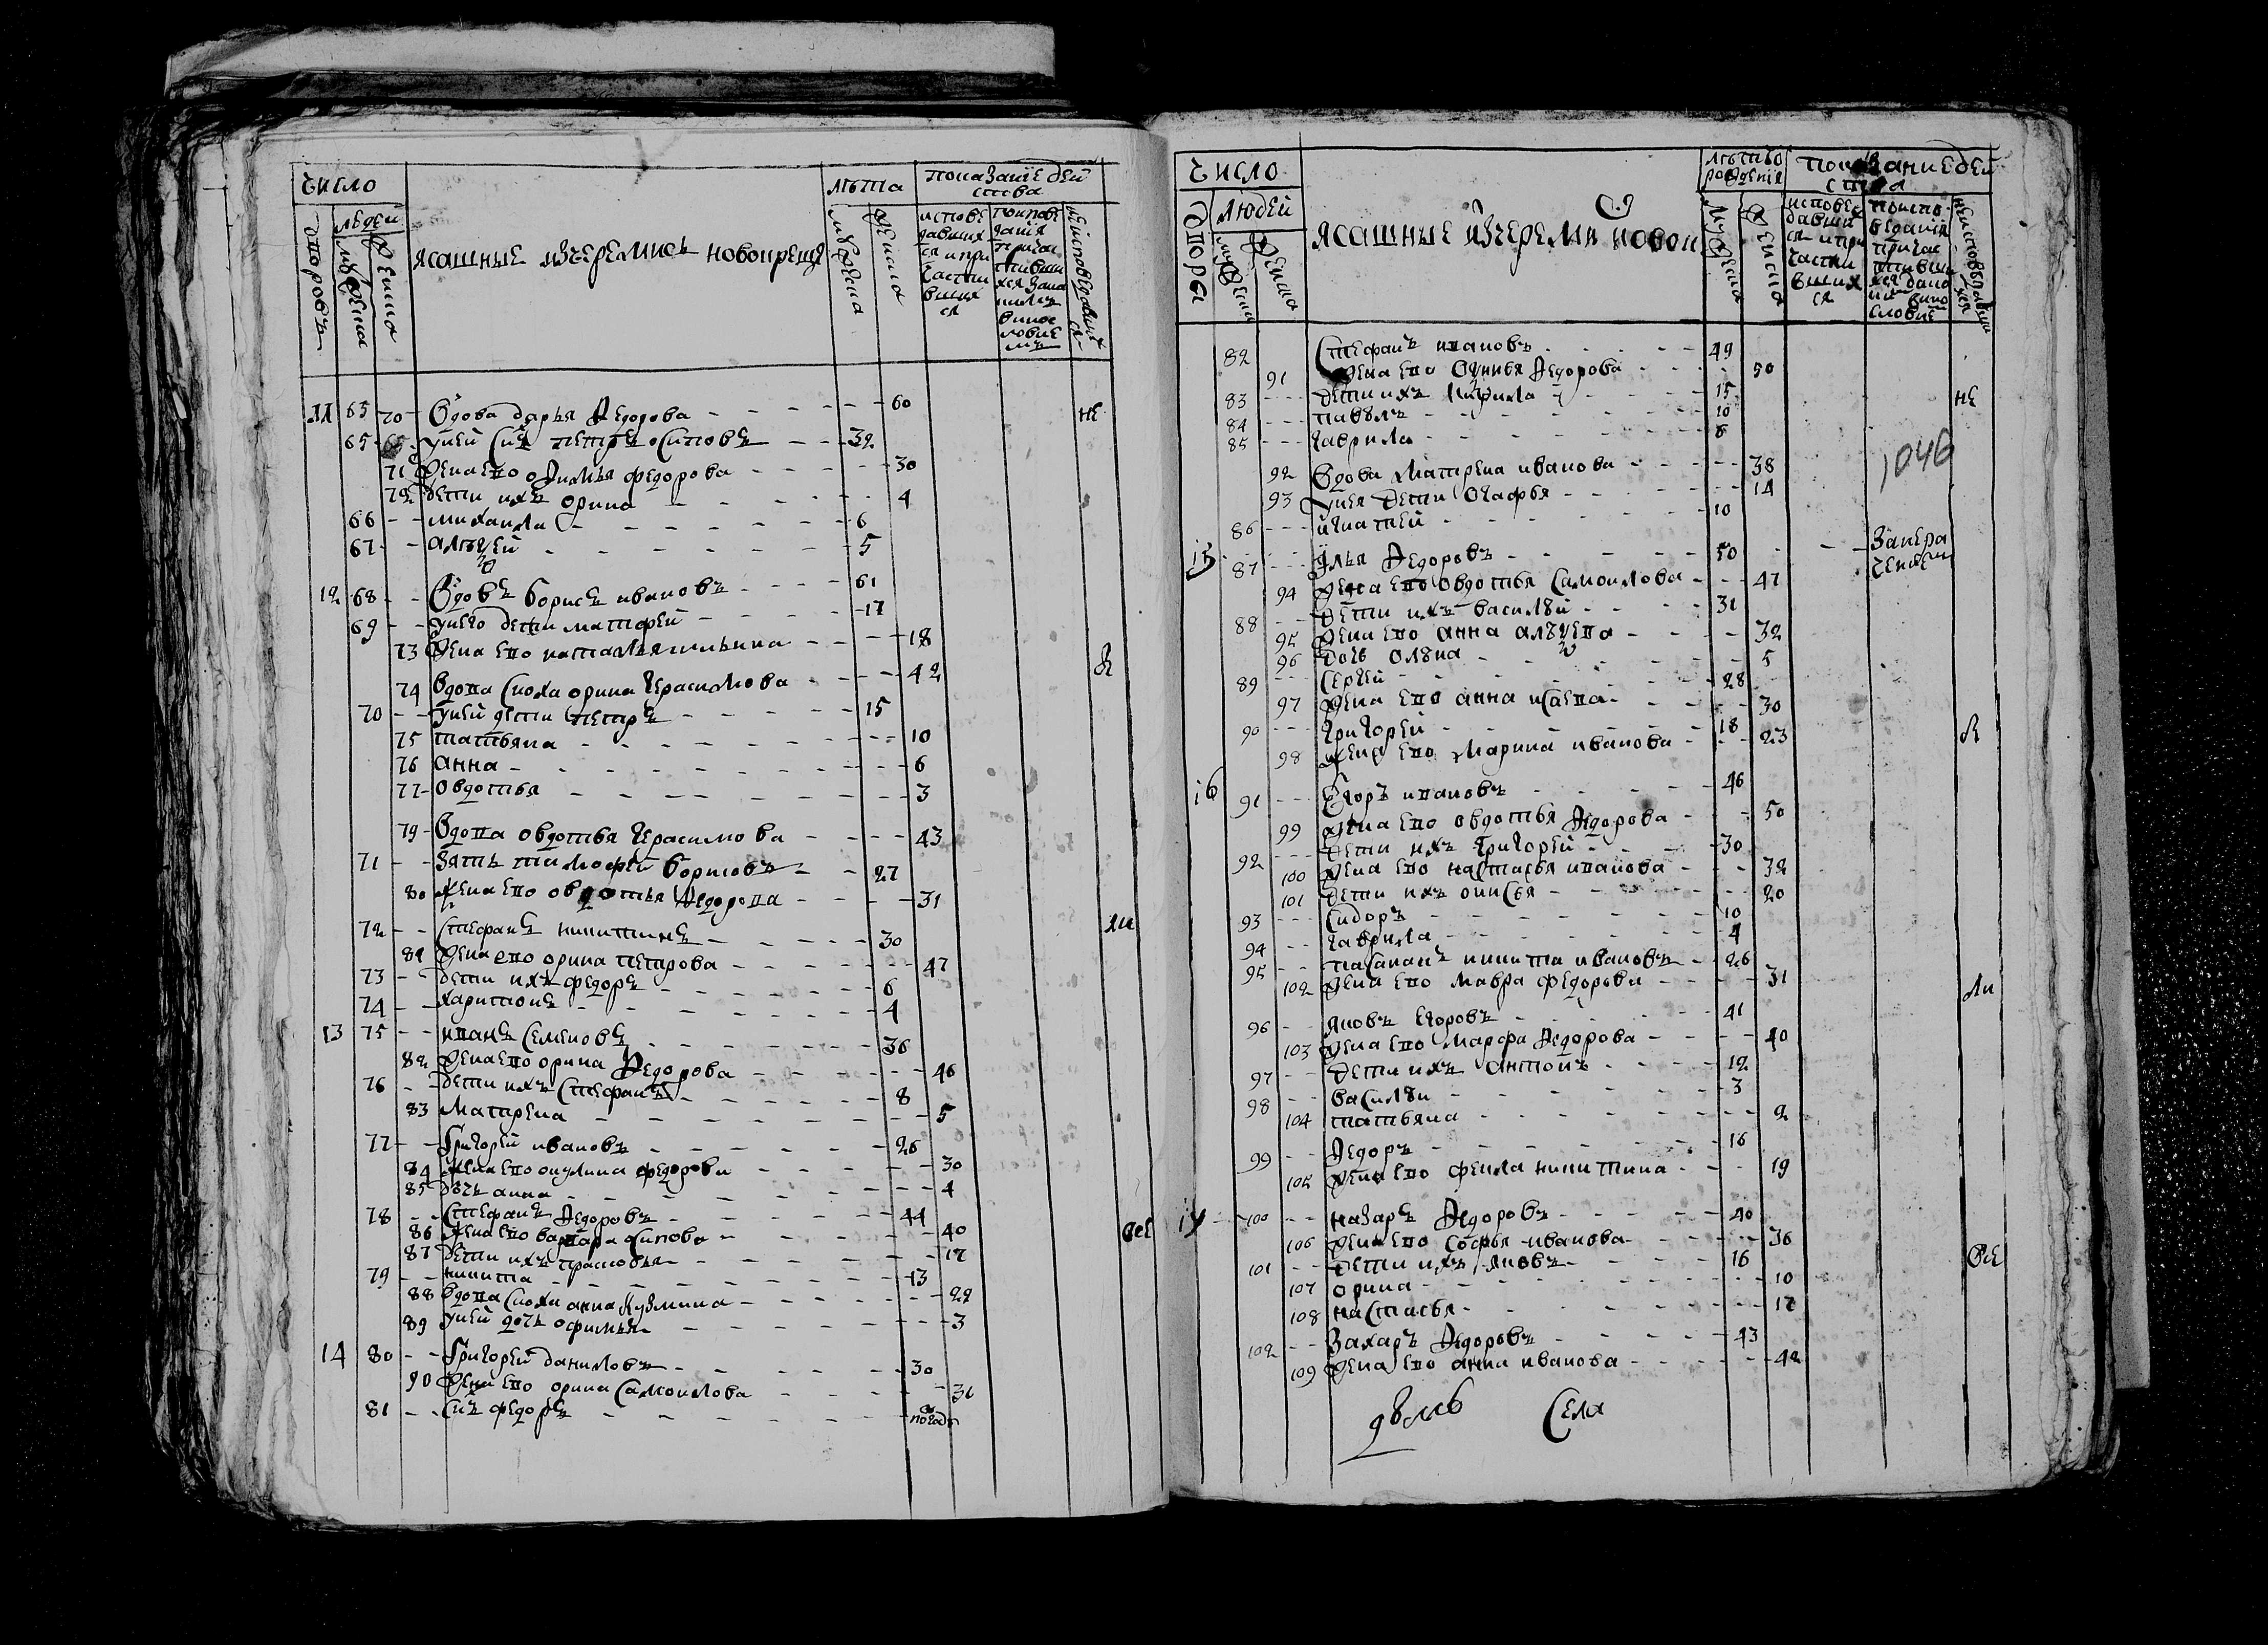 число
лѣта
показание дей
ства
дворовъ
людей
мужеска
женска
ясашные изчеремисъ новокреще
мужеска
женска
исповѣ
давших
ся и при
части
вших
ся
по испове
дания
причас
не исповедавших
ся
11 65 70 Вдова дарья Федорова 60 не
65 у ней сынъ петръ осиповъ 32
71 жена ево офимья федорова 30
72 дети ихъ орина 4
66 михаила 6
67 алѣѯей 5
12 68 Вдовъ борисъ ивановъ 61
69 у него дети матфей 17
73 жена ево наталья ильина 18
74 вдова сноха орина герасимова 42 я
70 у ней дети петръ 15
75 татьяна 10
76 анна 6
77 овдотья 3
79 Вдова овдотья герасимова 43
71 зять тимофей борисовъ 27
80 жена ево овдотья федорова 31
72 стефанъ никитинъ 30 ли
81 жена ево орина петрова 47
73 дети ихъ федоръ 6
74 харитонъ 4
13 75 иванъ семеновъ 36
82 жена ево орина федорова 46
76 дети ихъ стефанъ 8
83 матрена 5
77 григорей ивановъ 26
84 жена ево окулина федорова 30
85 дочь анна 4
78 стефанъ федоровъ 41
86 жена ево варвара осипова 40 все
87 дети ихъ прасковья 12
79 никита 13
88 вдова сноха анна кузмина 22
89 у ней дочь офимья 3
14 80 григорей даниловъ 30
90 жена ево орина самоилова 31
81 сынъ федоръ полгод
число
лѣтъ
рождения
показание дей
ства
двора
людей
мужеска
женска
ясашные изчереми новок
мужеска
женска
исповѣ
давши
ся и при
части
вших
ся
по испо
ведания
причас
82 стефанъ ивановъ 49
91 жена ево Федорова 50
83 дети ихъ кирила 15 не
84 павелъ 10
85 гаврила 6
92 Вдова матрена иванова 38
1046
93 у нея дети огафья 14
86 игнатей 10
15 87 илья федоровъ 50
94 жена ево овдотья самоилова 47
88 дети ихъ василей 31
95 жена ево анна алѣѯева 32
96 дочь олена 5
89 сергей 28
97 жена ево анна исаева 30
90 григорей 18 я
98 жена ево марина иванова 23
16 91 егоръ ивановъ 46
99 жена ево овдотья федорова 50
92 дети ихъ григорей 30
100 жена ево настасья иванова 32
101 дети ихъ онисья 20
93 сидоръ 10
94 гаврила 4
95 пасанакъ никита ивановъ 26
102 жена ево мавра федорова 31 ли
96 яковъ егоровъ 41
103 жена ево марфа федорова 40
97 дети ихъ антонъ 12
98 василей 3
104 татьяна 2
99 федоръ 16
105 жена ево фекла никитина 19
17 100 назаръ федоровъ 40
106 жена ево софья иванова 36
101 дети ихъ яковъ 16 все
107 орина 10
108 настасья 12
102 захаръ федоровъ 43
109 жена ево анна иванова 42
села